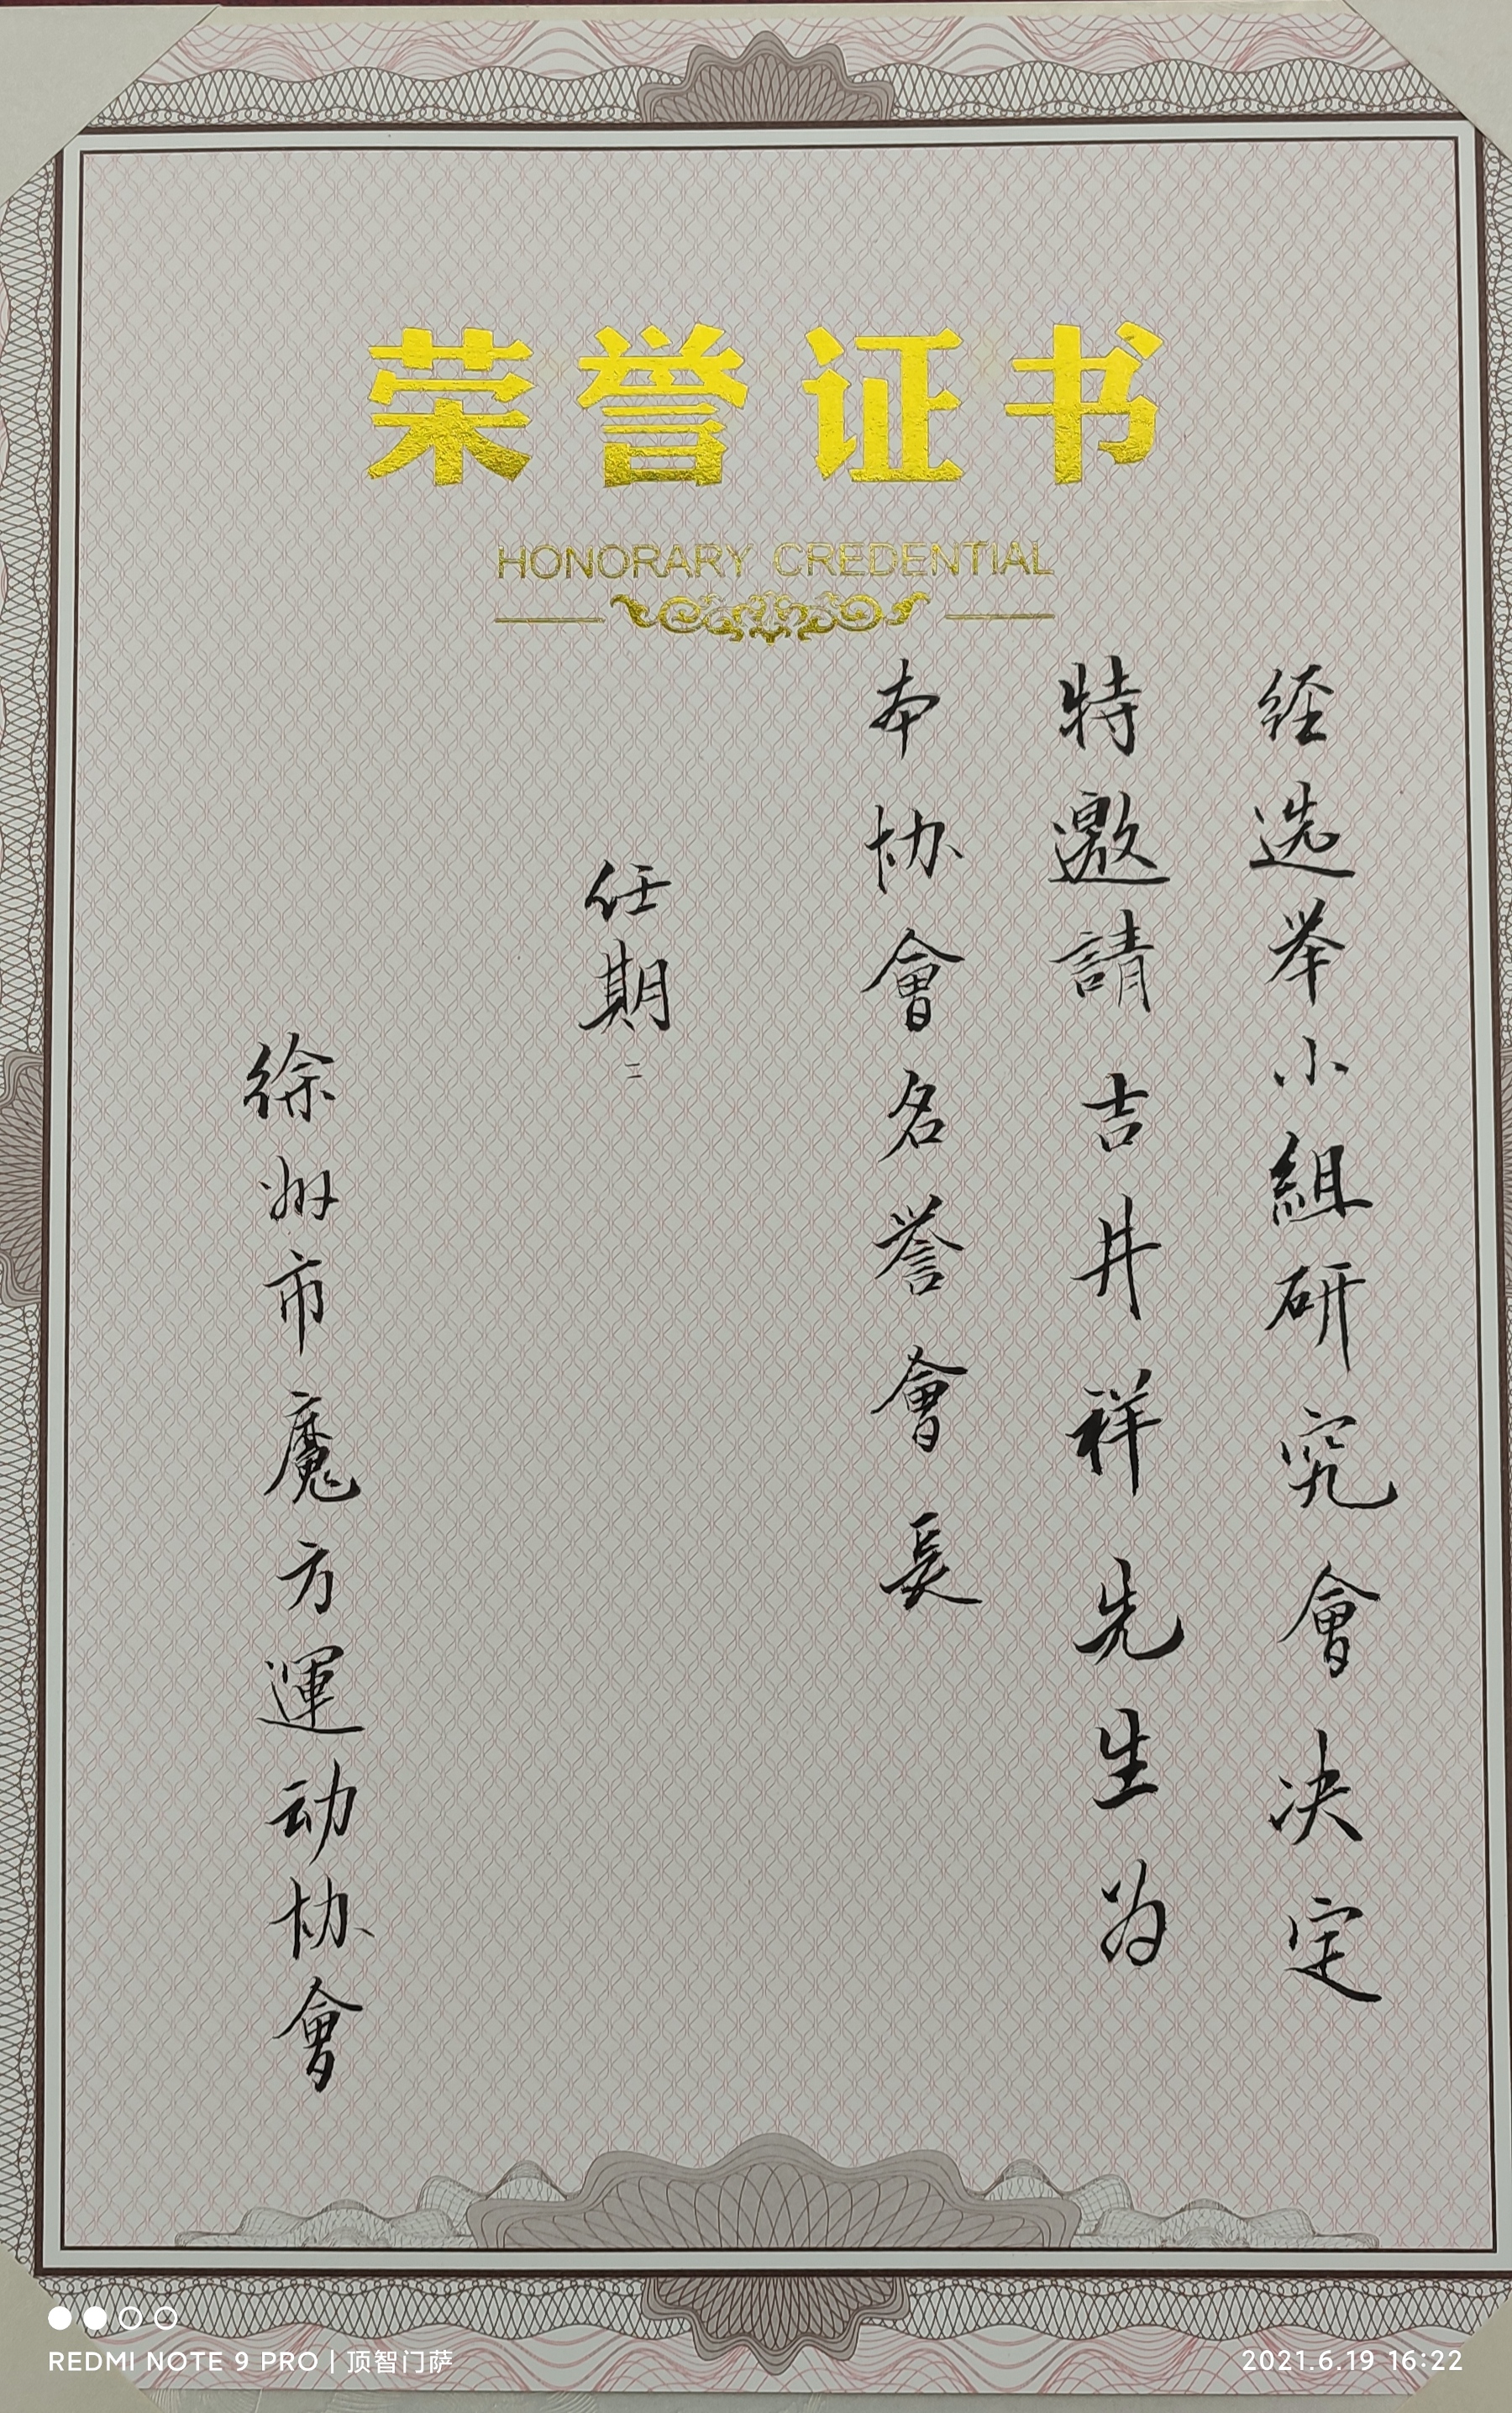 荣誉证书
HONORARY CREDENTIAL
经选举小組研究會决定
特邀請吉井祥先生为
本协會名誉會長
任期
徐州市魔方運动协會
REDMI NOTE 9 PRO | 顶智门萨
2021.6.19 16:22